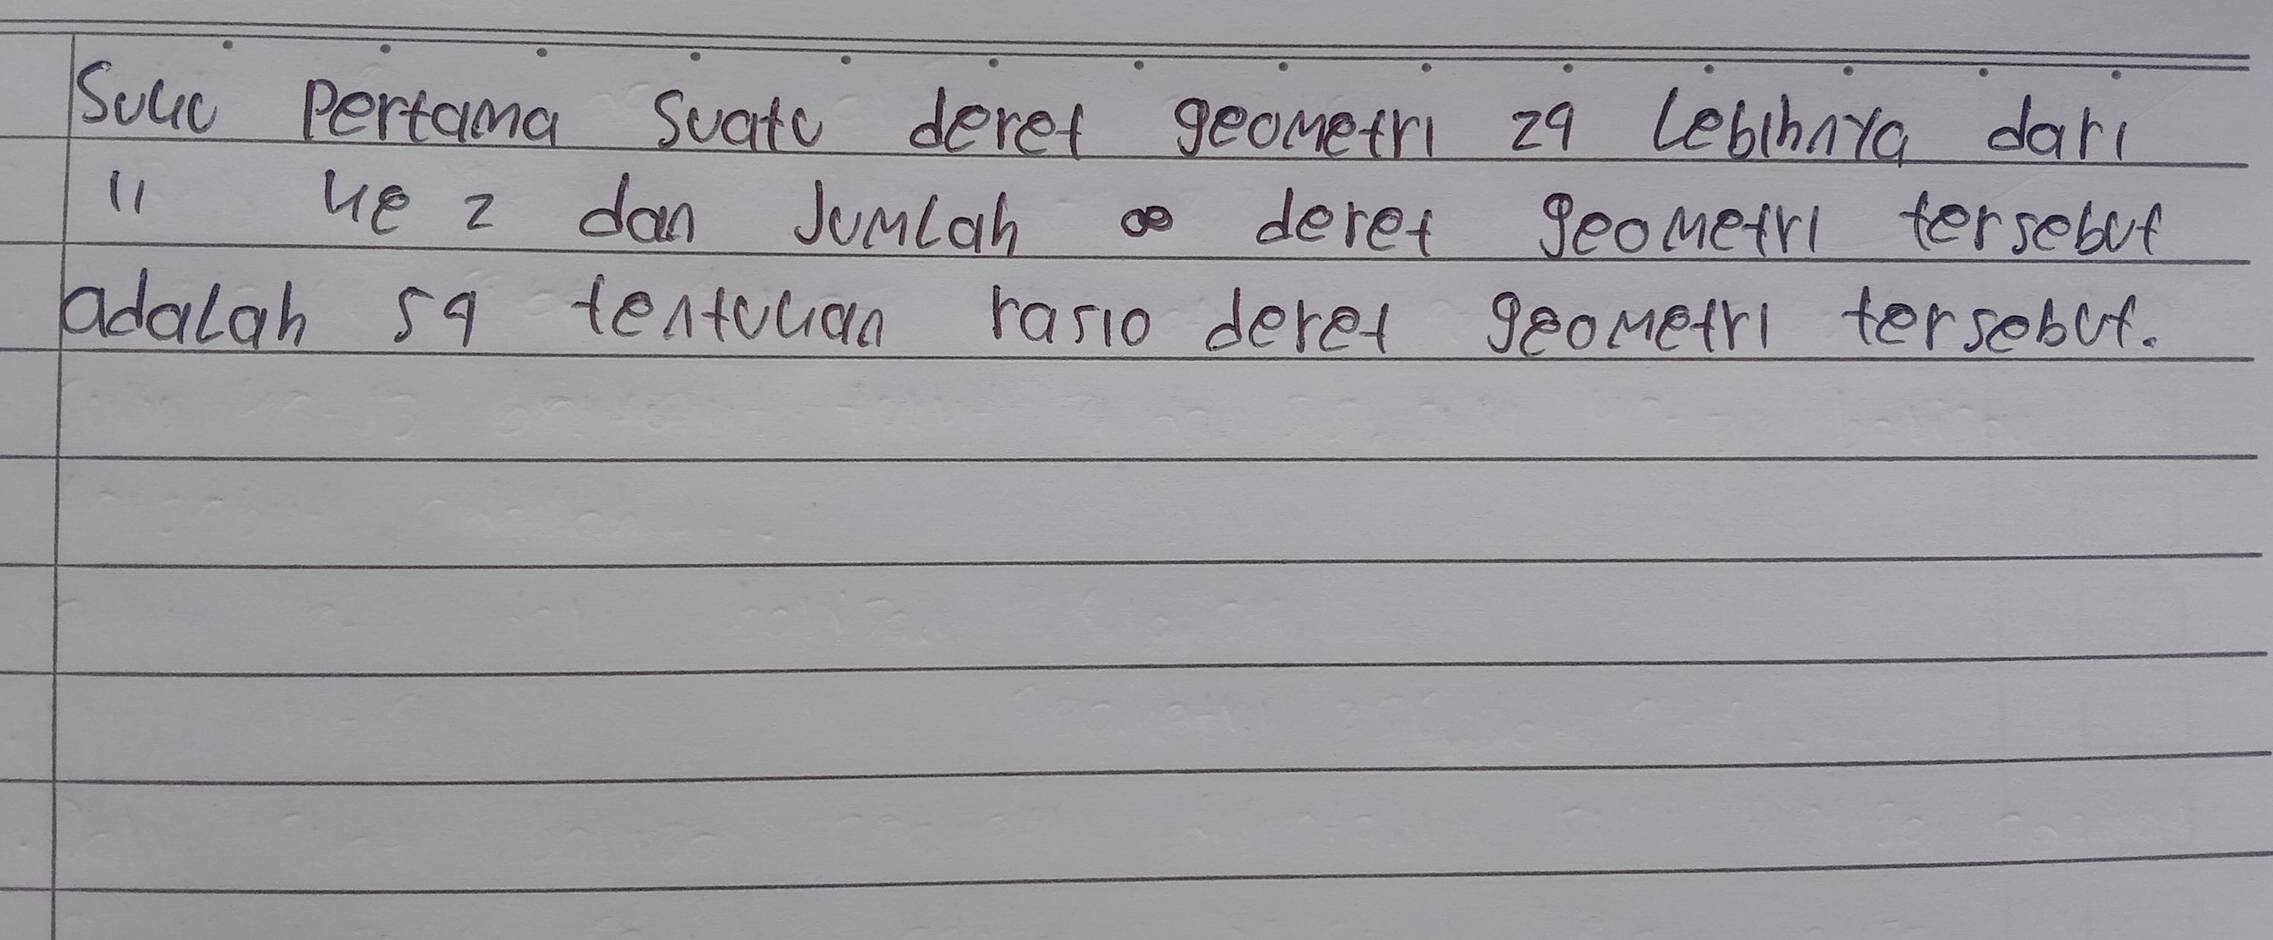 Suku Pertama Suatu deret geometri 24 Lebihnya dari
" ke 2 dan Jumlah ∞ deret geometri tersebut
adalah 54 tentukan rasio deret geometri tersebut.